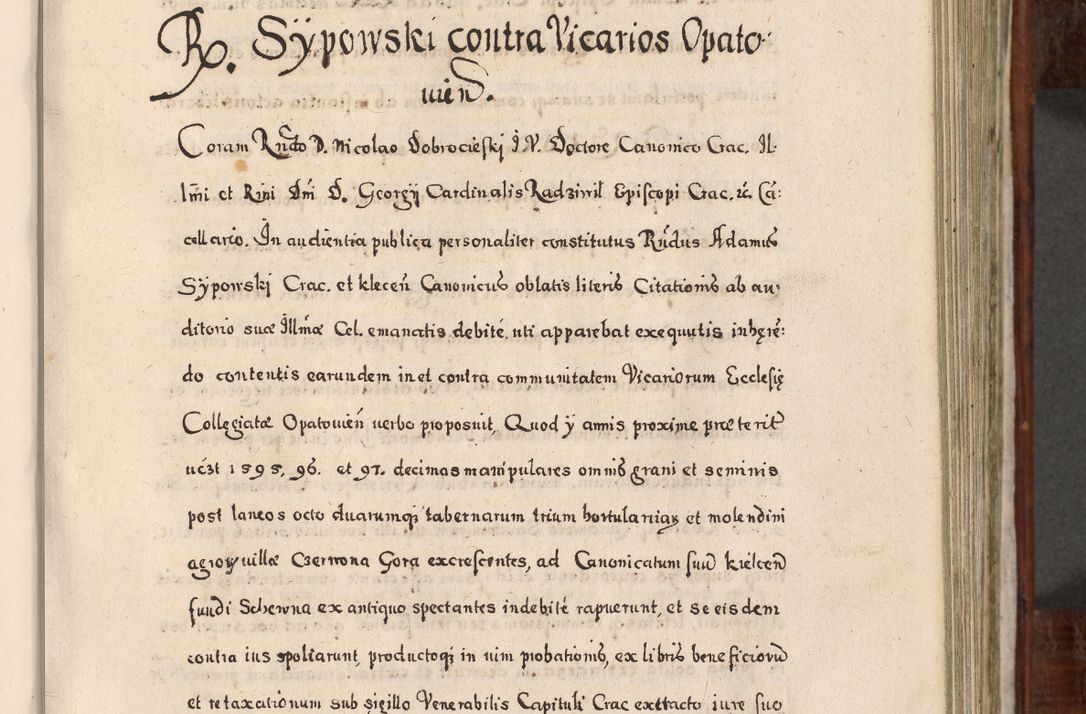 R. Sÿpowski contra Vicarios Opato-
uien̄.
Coram Rn̄do D. Nicolao Dobrocieſkj J. V. Doctore Canonico Crac. Il-
lm̄i et Rm̄i Dn̄i D. Georgÿ Cardinalis Radziwil Epiſcopi Crac. ꝛč. Cā:
cellario. In audientia publica personaliter constitutus Rn̄dus Adamus
Sÿpowskj Crac. et klecen̄ Canonicus oblatis literis Citationis ab au-
ditorio suæ Illm̄æ Cel. emanatis debité, uti apparebat exequutis inhęrē:
do contentis earundem in et contra communitatem Vicariorum Ecclesię
Collegiatæ Opatouien̄ uerbo proposuit, Quod ÿ annis proxime præterit
uc̄zt 1595, 96. et 97. decimas manipulares omnis grani et seminis
post laneos octo duarumqꝫ tabernarum trium hortulaniaꝝ et molendini
agroꝝ uillæ Czerwona Gora excrescentes, ad Canonicatum suū kielcen̄
fundi Schewna ex antiquo spectantes indebité rapuerunt, et se eisdem
contra ius spoliarunt, productoqꝫ in uim probationis, ex libris beneficiorū
et retaxationum sub sigillo Venerabilis Capituli Crac extracto iure suo